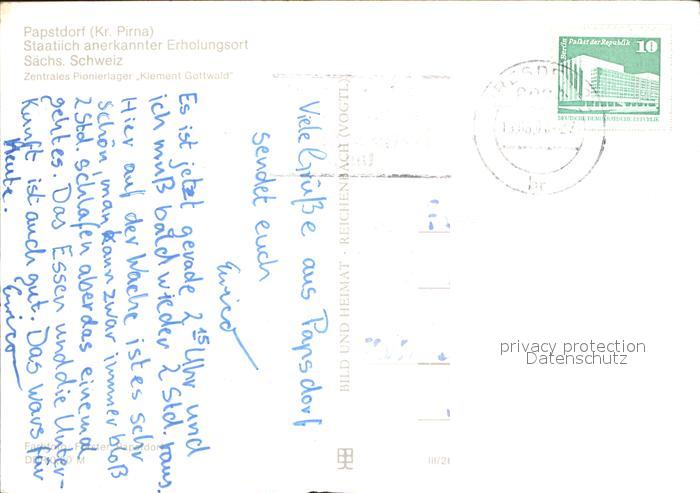 Papstdorf (Kr. Pirna)
Staatlich anerkannter Erholungsort
Sächs. Schweiz
Zentrales Pionierlager „Klement Gottwald"
Viele Grüße aus Papsdorf
sendet euch
Enrico
Es ist jetzt gerade 2 15 Uhr und
ich muß bald wieder 2 Std. raus.
Hier auf der Wache ist es sehr
schön, man kann zwar immer bloß
2 Std. schlafen aber das einemal
geht es. Das Essen und die Unter-
kunft ist auch gut. Das wars für
Heute.
Enrico
BILD UND HEIMAT · REICHENBACH (VOGTL)
Berlin Palast der Republik
10
DEUTSCHE DEMOKRATISCHE REPUBLIK
br
privacy protection
Datenschutz
III/26